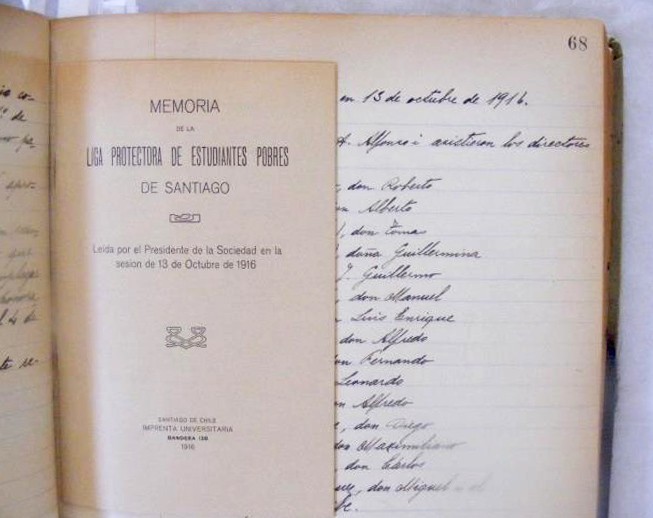 68
MEMORIA
DE LA
LIGA PROTECTORA DE ESTUDIANTES POBRES
DE SANTIAGO
Leida por el Presidente de la Sociedad en la
sesion de 13 de Octubre de 1916
SANTIAGO DE CHILE
IMPRENTA UNIVERSITARIA
BANDERA 130
1916
en 13 de octubre de 1916.
A. Alfonso i asistieron los directores
, don Roberto
on Alberto
, don Tomas
doña Guillermina
J. Guillermo
, don Manuel
Luis Enrique
don Alfredo
on Fernando
Leonardo
on Alfredo
, don Diego
don Maximiliano
don Cárlos
uez, don Miguel